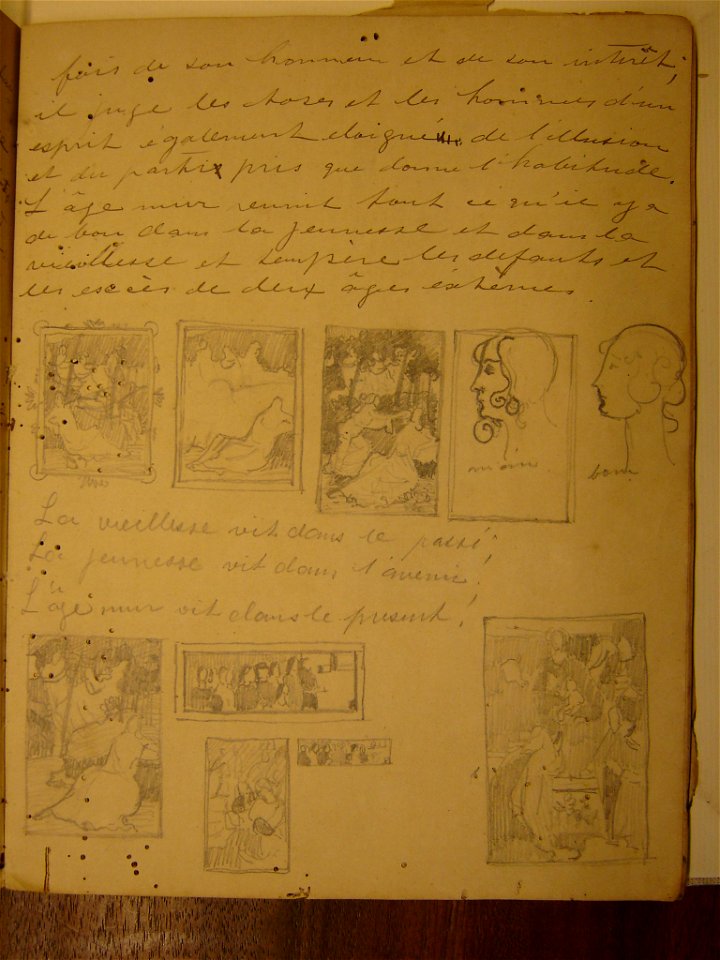 fois de son honneur et de son intérêt;
il juge les choses et les hommes d'un
esprit également eloigné de l'illusion
et du parti pris que donne l'habitude.
L'âge mur reunit tout ce qu'il y a
de bon dans la jeunesse et dans la
vieillesse et tempère les defauts et
les excès de deux âges extêmes.
main
bom
La vieillesse vit dans le passé;
La jeunesse vit dans l'avenir;
L'âge mur vit dans le present!